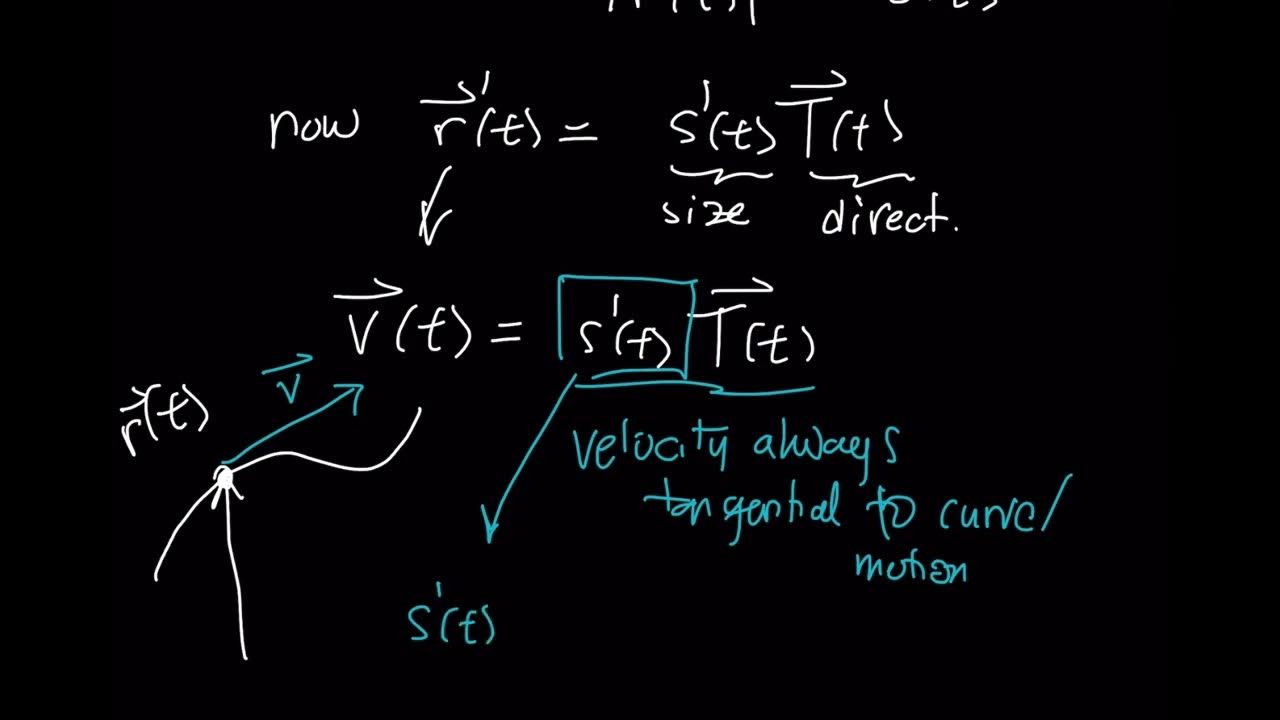 now r⃗'(t) = s'(t) T⃗(t)
size direct.
v⃗(t) = s'(t) T⃗(t)
r⃗(t) v⃗
velocity always
tangential to curve/
motion
s'(t)